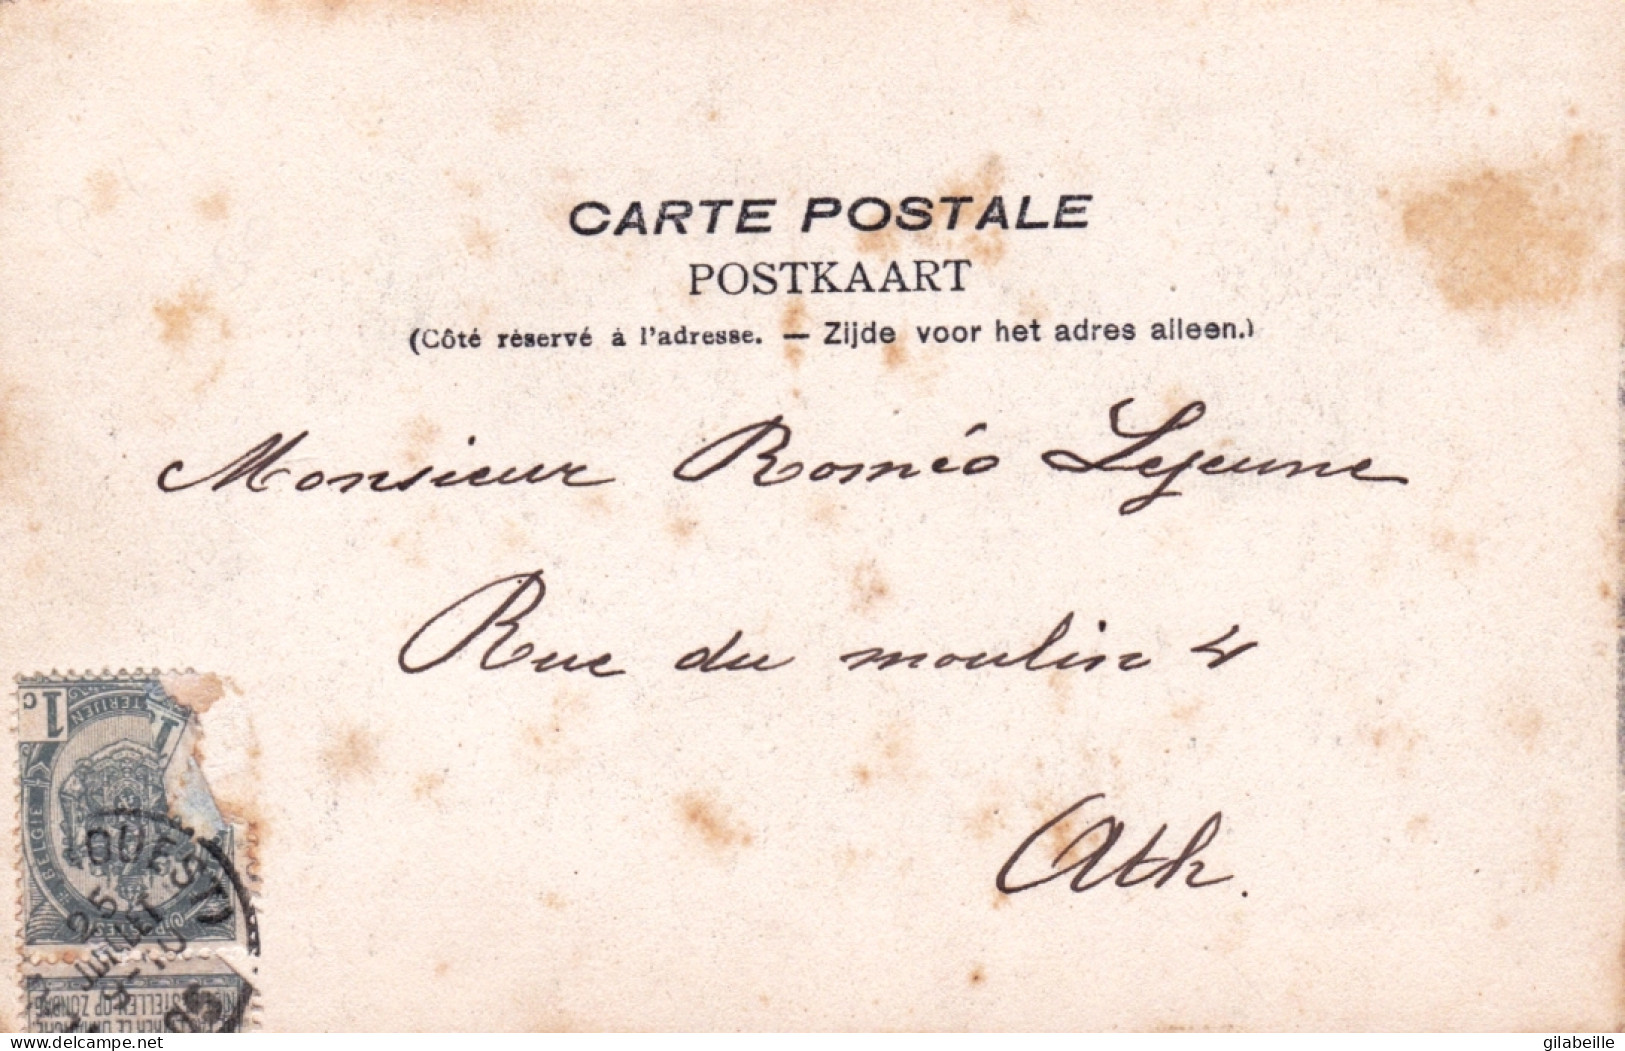 CARTE POSTALE
POSTKAART
(Côté réservé à l'adresse. — Zijde voor het adres alleen.)
Monsieur Roméo Lejeune
Rue du moulin 4
Ath.
1c 1
BELGIE
(OUEST)
25
JUILLET
9-10
www.delcampe.net
gilabeille